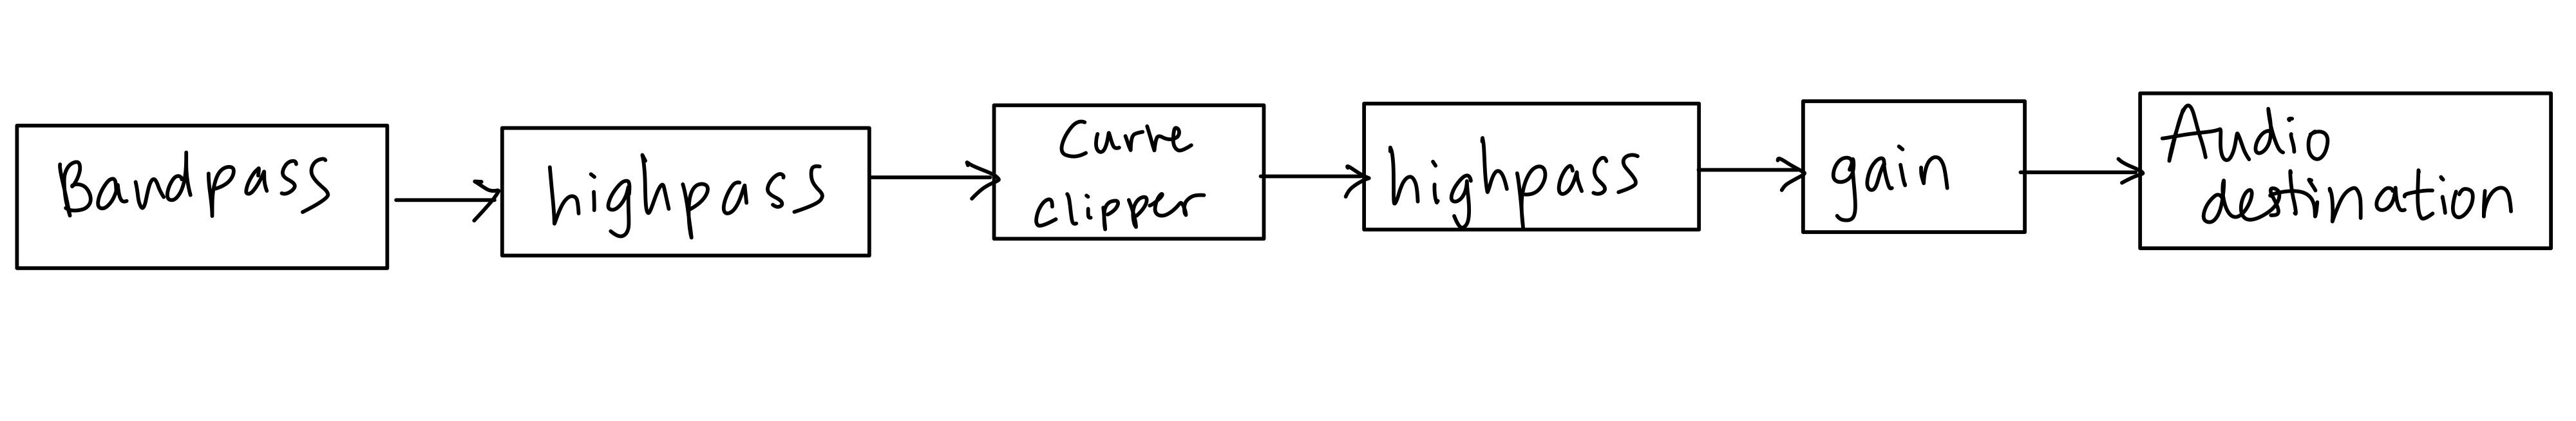 Bandpass
highpass
Curve
clipper
highpass
gain
Audio
destination